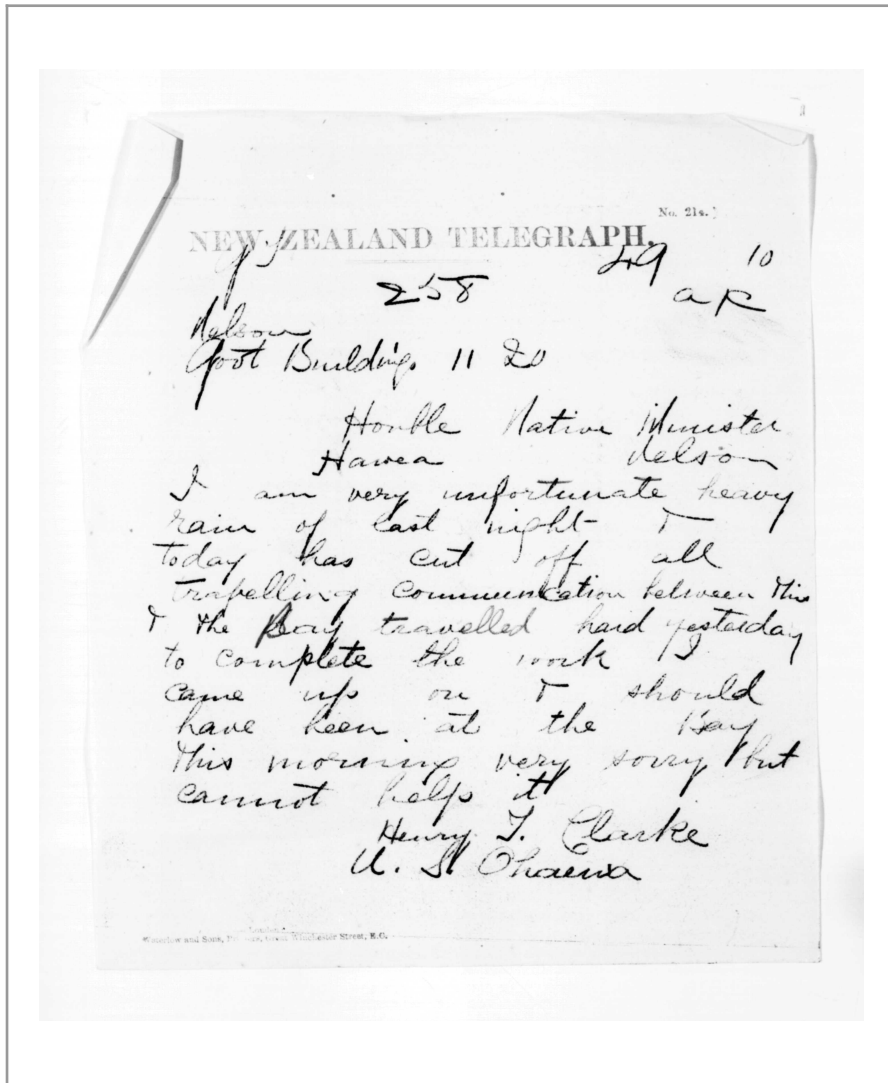 No. 214.)
NEW ZEALAND TELEGRAPH.
49 10
258
Nelson
Govt Buildings 11 20
Honble Native Minister
Hawea Nelson
I am very unfortunate heavy
rain of last night &
today has cut off all
travelling communication between this
& the Bay travelled hard yesterday
to complete the work I
came up on & should
have been at the Bay
this morning very sorry but
cannot help it
Henry T. Clarke
U. S. Ohaewa
London.
Waterlow and Sons, Great Winchester Street, E.C.